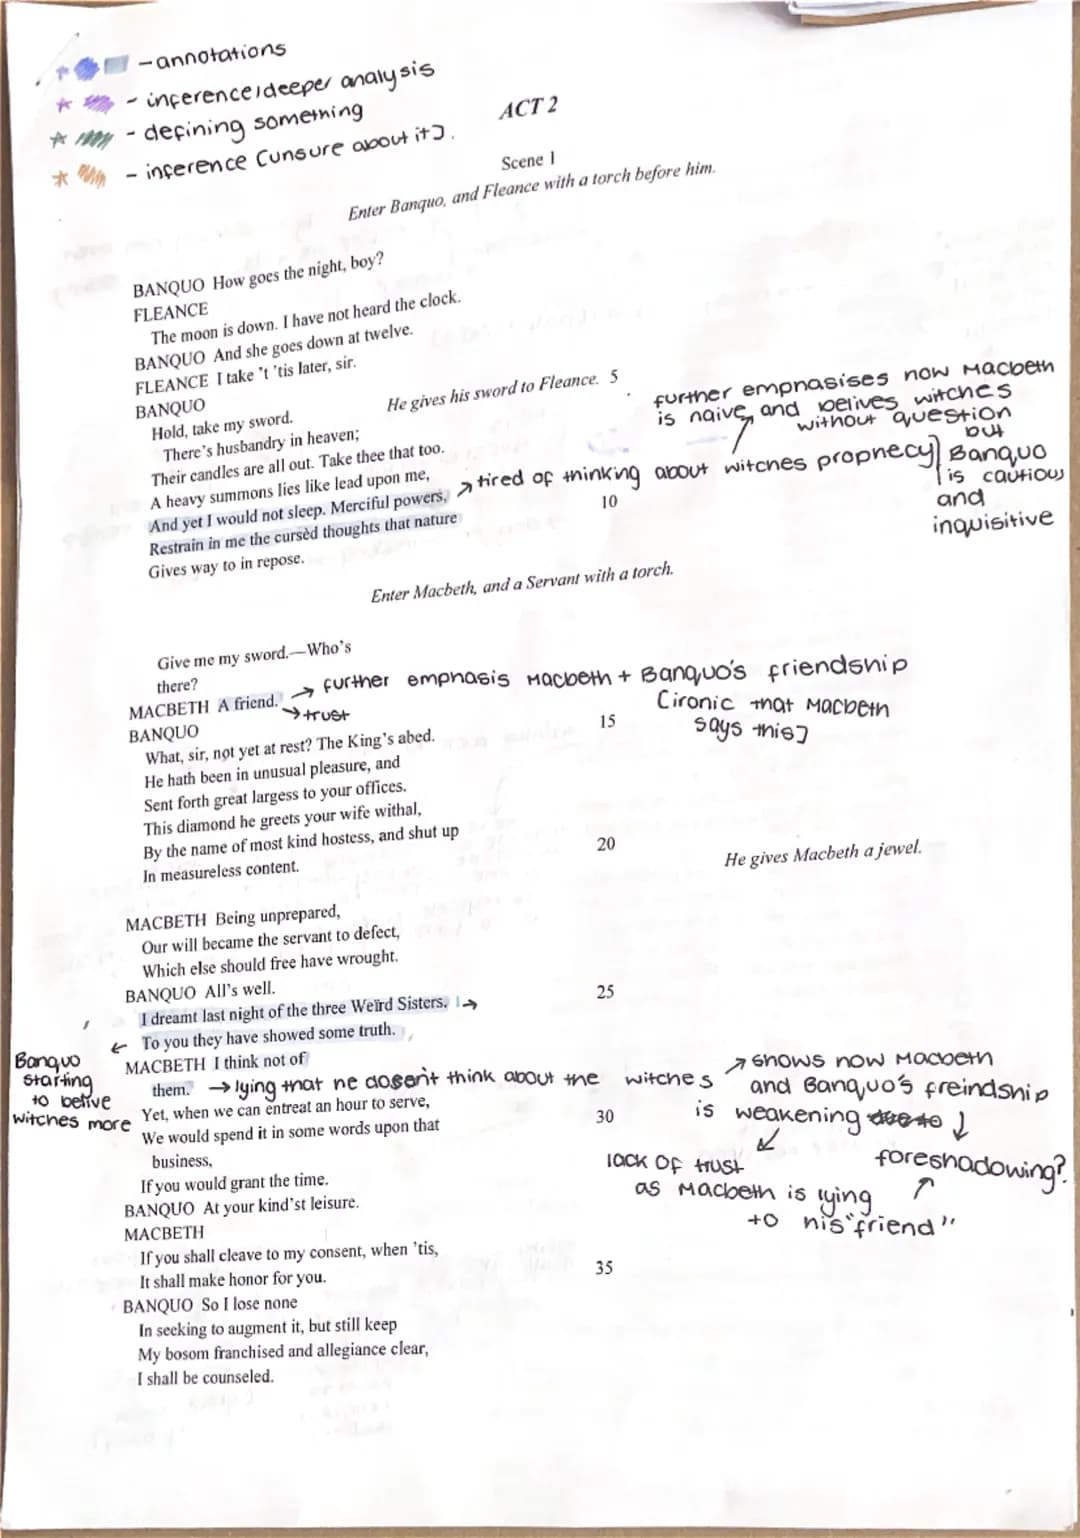 - annotations
- inference/deeper analysis
- defining something
- inference [unsure about it].
ACT 2
Scene 1
Enter Banquo, and Fleance with a torch before him.
BANQUO How goes the night, boy?
FLEANCE
The moon is down. I have not heard the clock.
BANQUO And she goes down at twelve.
FLEANCE I take 't 'tis later, sir.
BANQUO
Hold, take my sword. He gives his sword to Fleance. 5
There's husbandry in heaven;
Their candles are all out. Take thee that too.
A heavy summons lies like lead upon me,
And yet I would not sleep. Merciful powers, 10
Restrain in me the cursèd thoughts that nature
Gives way to in repose.
further emphasises how Macbeth
is naive and belives witches
without question
but
Banquo
is cautious
and
inquisitive
tired of thinking about witches prophecy
Enter Macbeth, and a Servant with a torch.
Give me my sword.—Who's
there?
MACBETH A friend.
further emphasis Macbeth + Banquo's friendship
trust
[ironic that Macbeth
says this]
BANQUO 15
What, sir, not yet at rest? The King's abed.
He hath been in unusual pleasure, and
Sent forth great largess to your offices.
This diamond he greets your wife withal,
By the name of most kind hostess, and shut up 20
In measureless content. He gives Macbeth a jewel.
MACBETH Being unprepared,
Our will became the servant to defect,
Which else should free have wrought.
BANQUO All's well. 25
I dreamt last night of the three Weïrd Sisters.
To you they have showed some truth.
Banquo
starting
to belive
witches more
MACBETH I think not of
them.
lying that he dosen't think about the witches
Yet, when we can entreat an hour to serve, 30
We would spend it in some words upon that
business,
If you would grant the time.
shows how Macbeth
and Banquo's freindship
is weakening
foreshadowing?
lack of trust
as Macbeth is lying
to his "friend"
BANQUO At your kind'st leisure.
MACBETH
If you shall cleave to my consent, when 'tis, 35
It shall make honor for you.
BANQUO So I lose none
In seeking to augment it, but still keep
My bosom franchised and allegiance clear,
I shall be counseled.